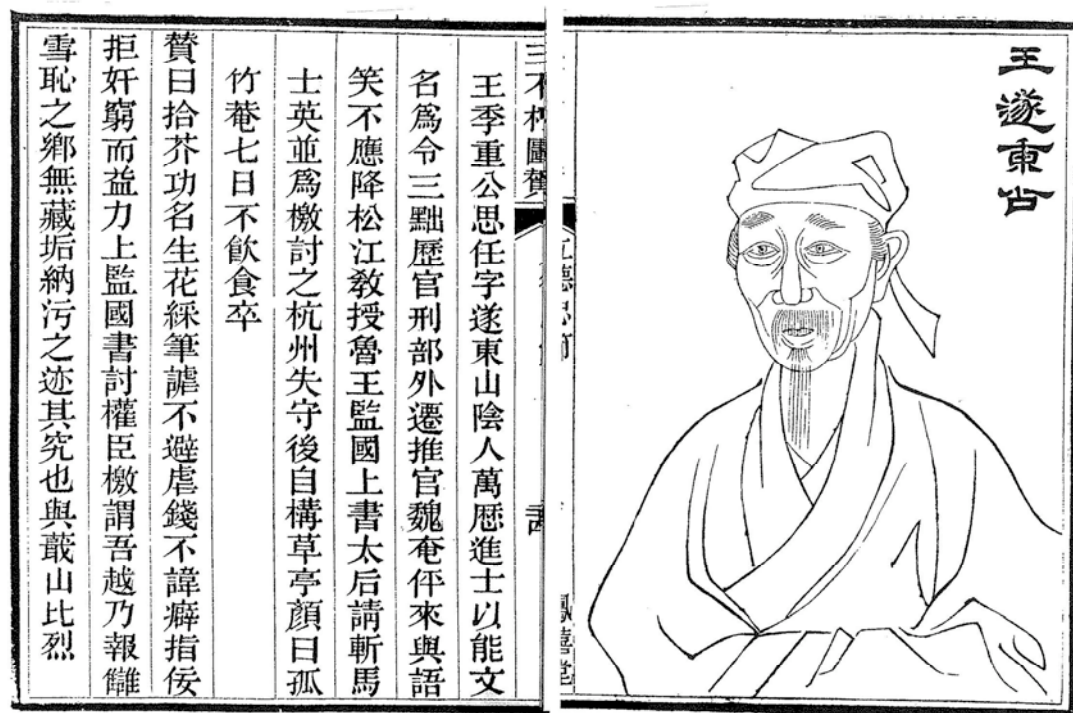 王遂東公
三不朽圖贊
王季重公思任字遂東山陰人萬厯進士以能文
名爲令三黜歷官刑部外遷推官魏奄伻來與語
笑不應降松江敎授魯王監國上書太后請斬馬
士英並爲檄討之杭州失守後自構草亭顏曰孤
竹菴七日不飮食卒
贊曰拾芥功名生花綵筆謔不避虐錢不諱癖指佞
拒奸窮而益力上監國書討權臣檄謂吾越乃報讎
雪恥之鄉無藏垢納污之迹其究也與蕺山比烈